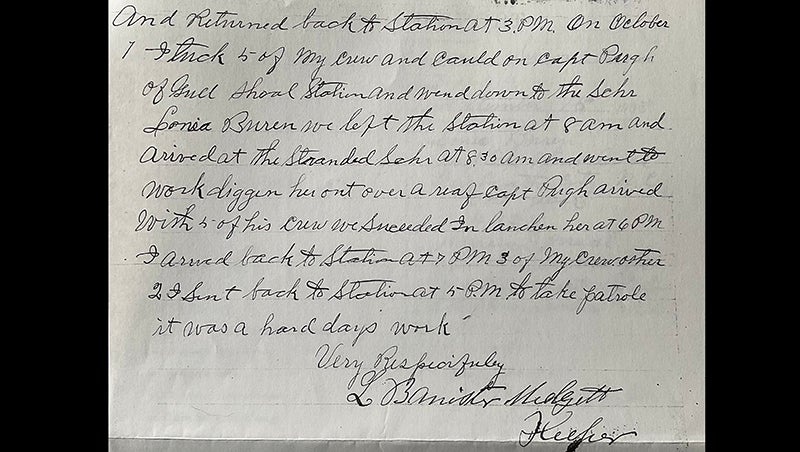 And Returned back to Station at 3.P.M. On October
1 I tuck 5 of my crew and cauld on capt Pugh
of Gull Shoal Station and wend down to the Schr
Lonia Buren we left the Station at 8 am and
arived at the Stranded Schr at 8.30 am and went to
work diggen her out over a reaf capt Pugh arived
With 5 of his crew we Succeeded In lanchen her at 6 PM
I arived back to Station at 7 PM 3 of My Crew other
2 I Sent back to Station at 5 P.M to take patrole
it was a hard days work
Very Respecifuley
L Banister Midgett
Keeper